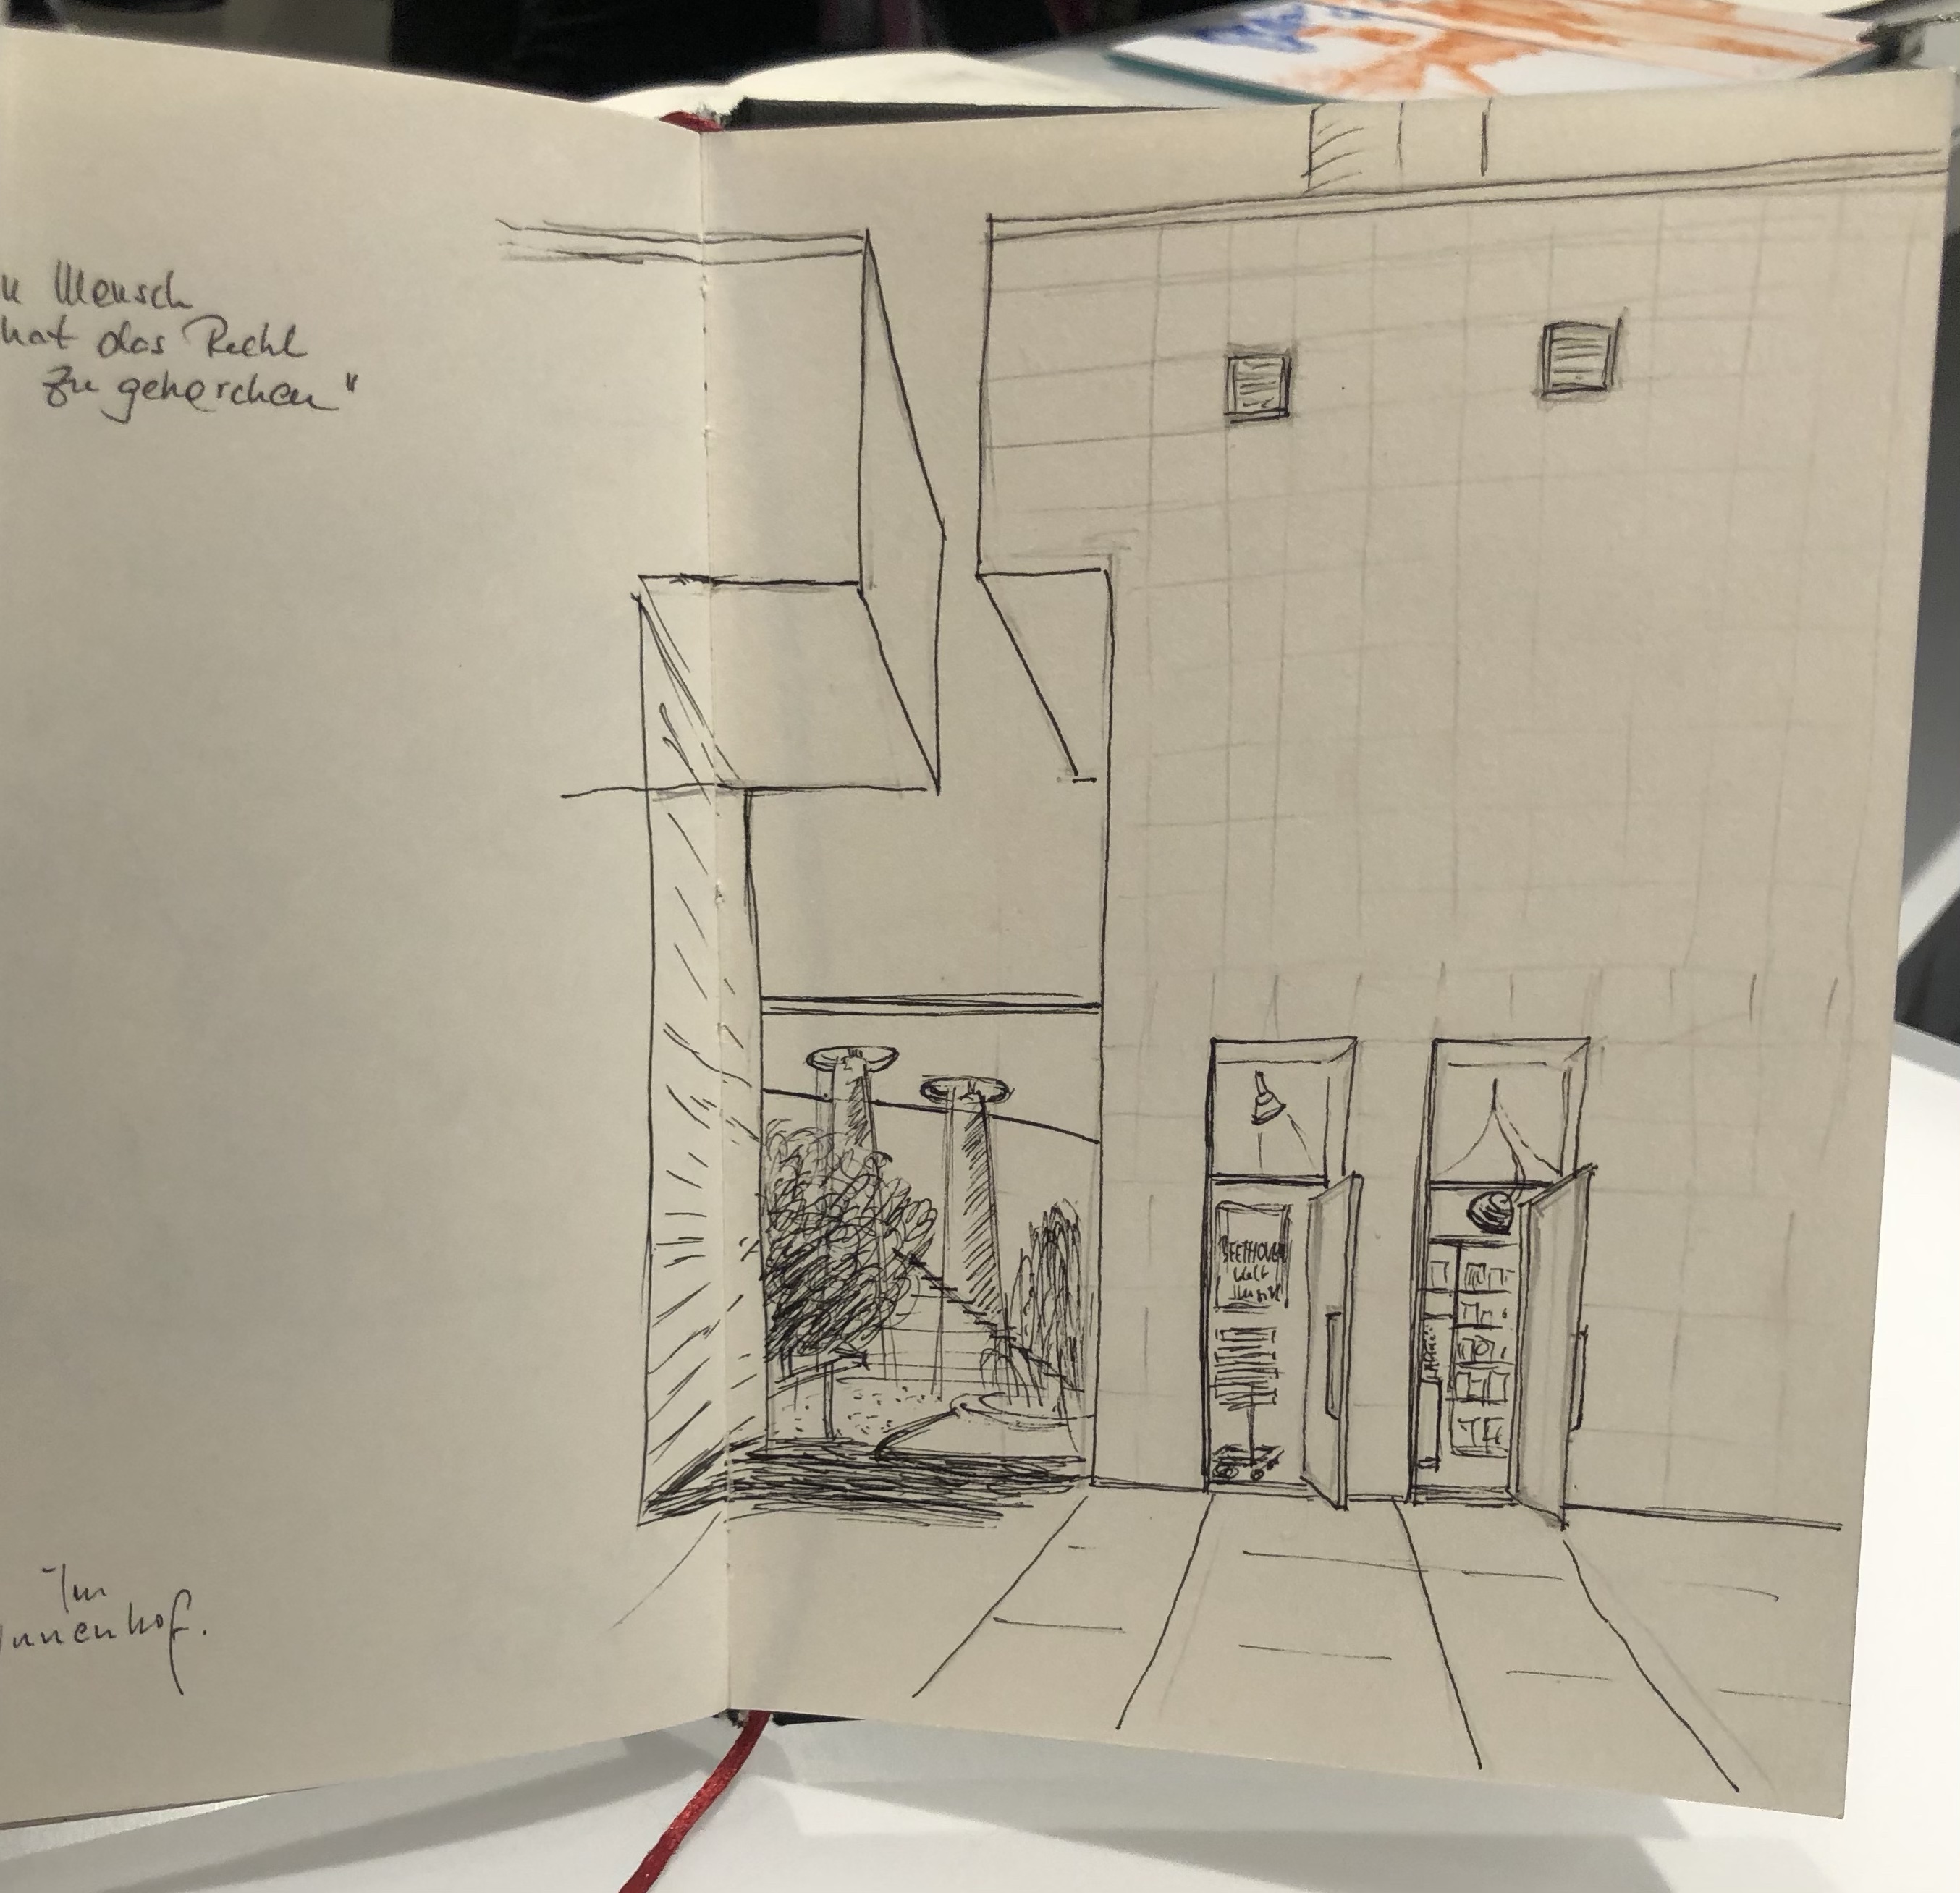 n Mensch
hat das Recht
zu gehorchen"
Im
Innenhof.
BEETHOVEN
Welt
Musik